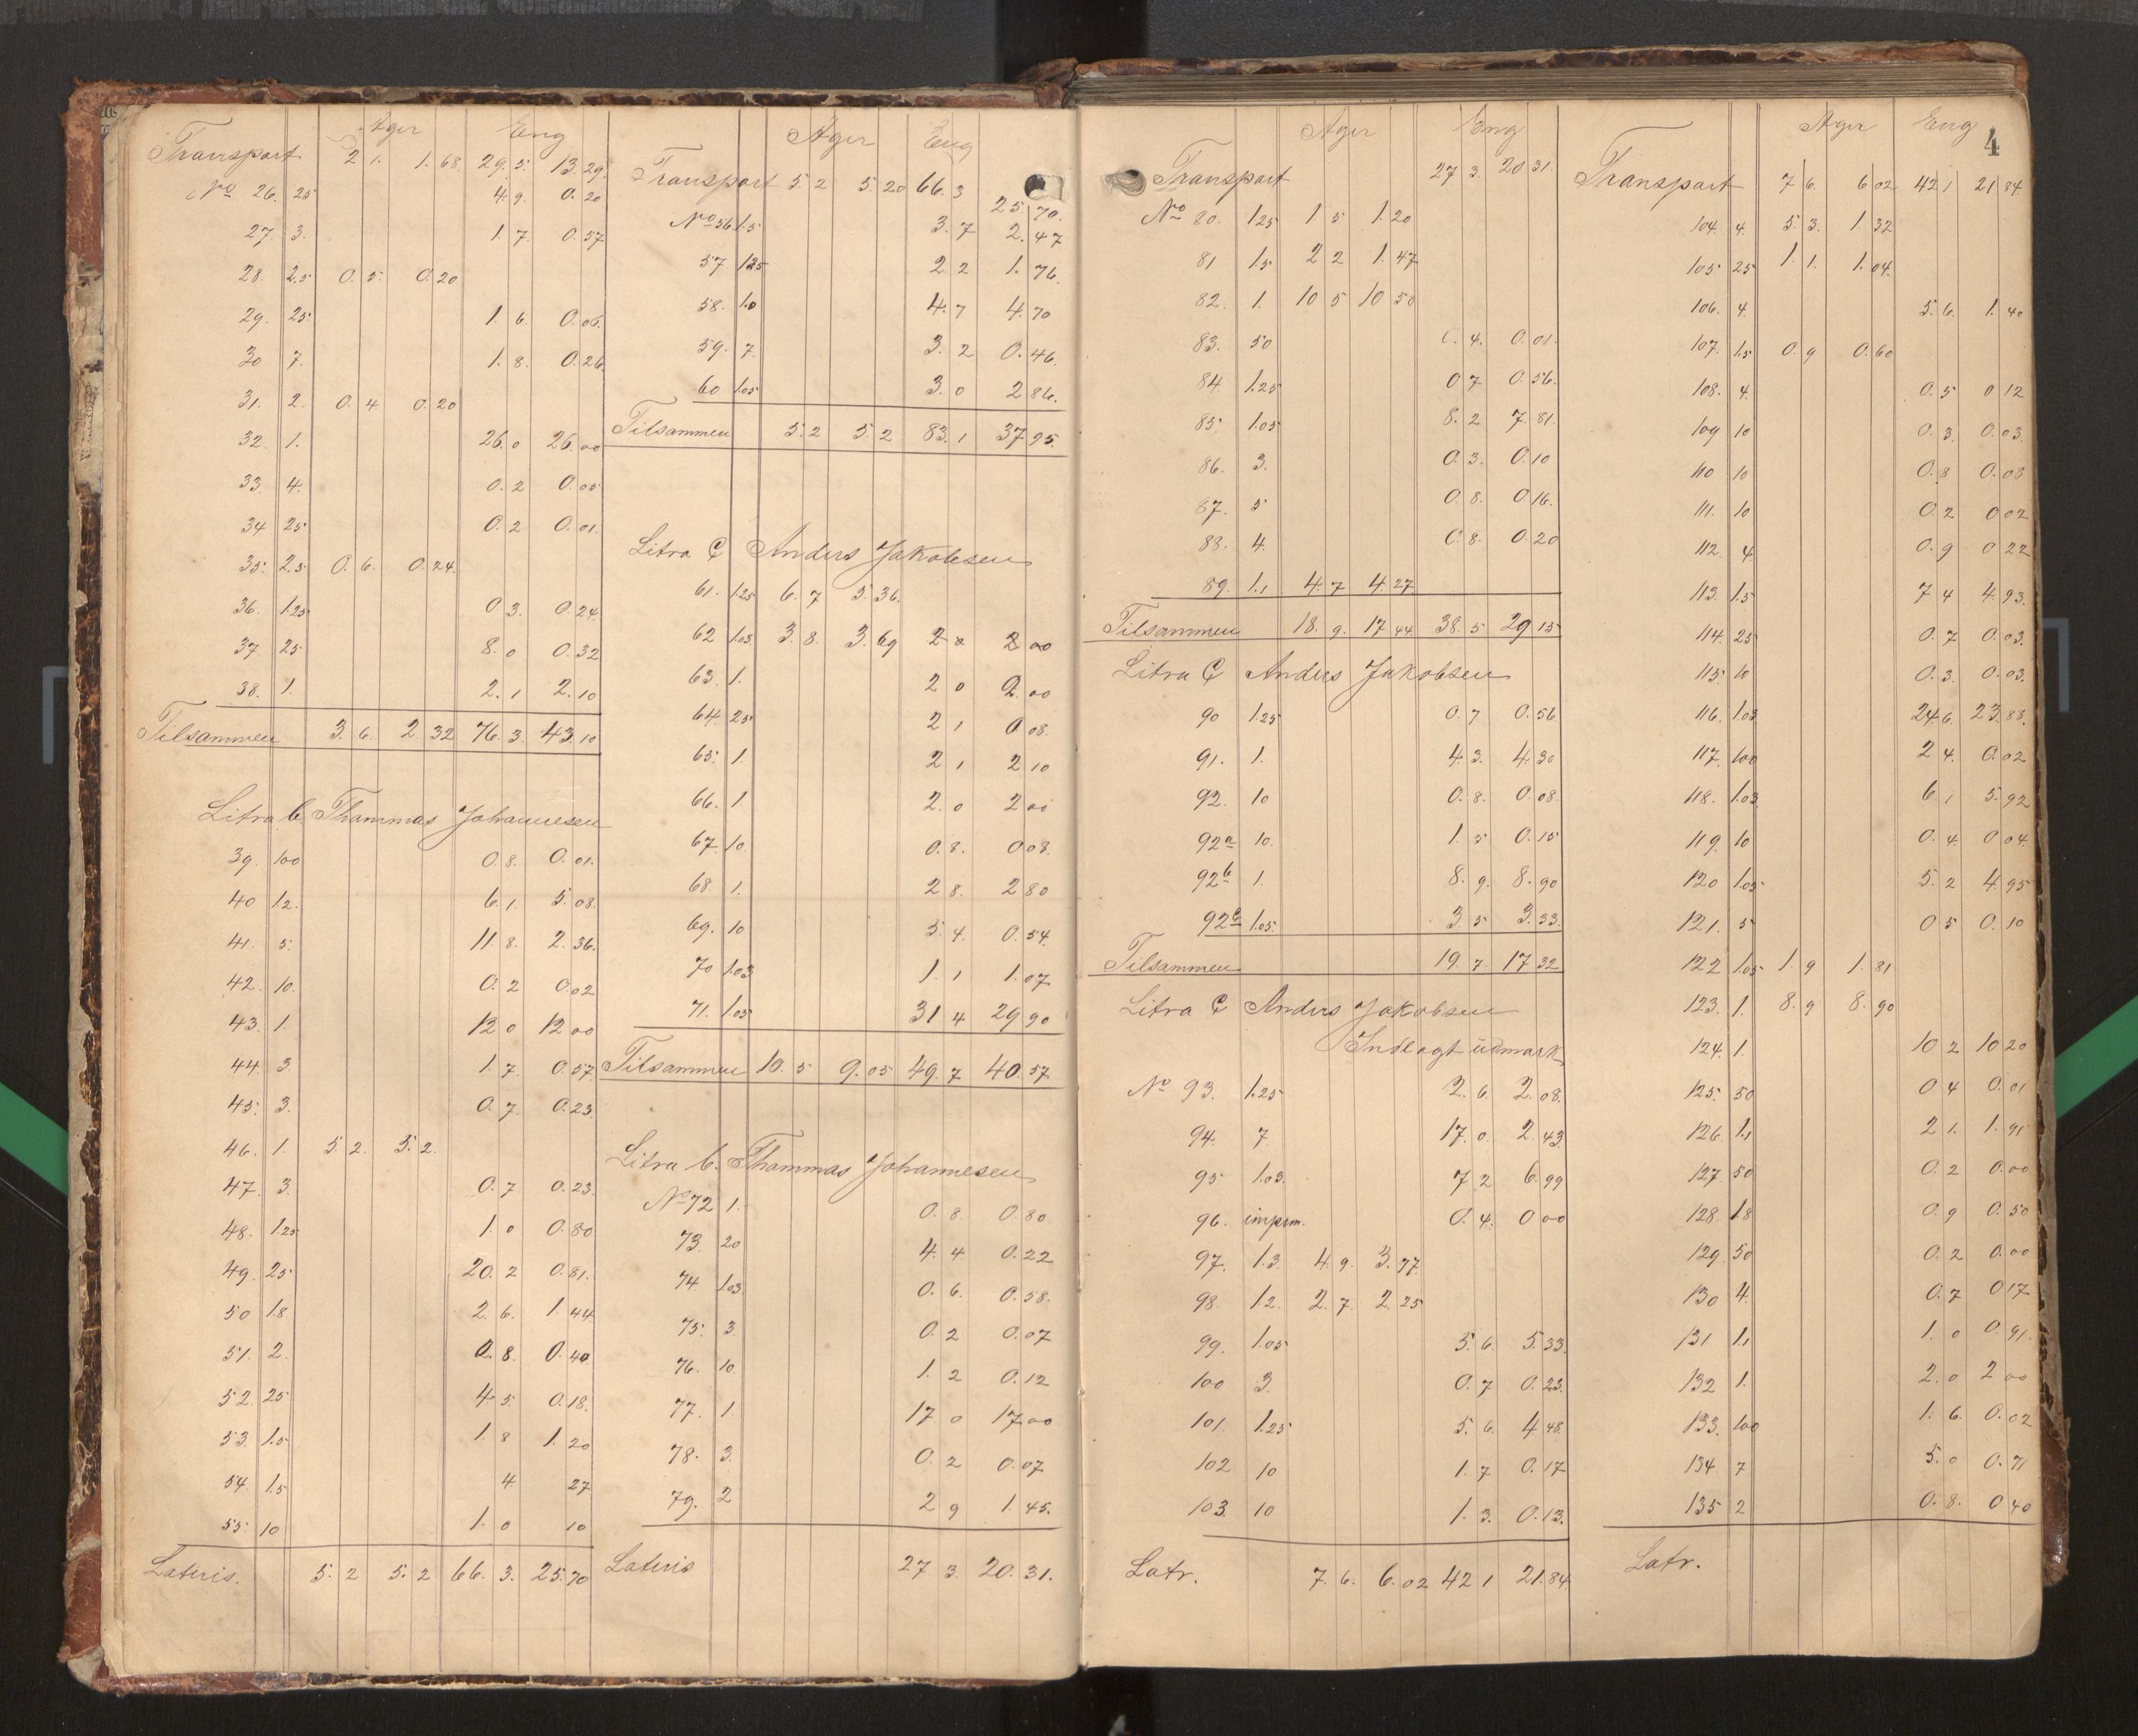 Ager Eng
Transport 2 1. 1. 68 29. 5. 13. 29.
No 26. 25 4. 9. 0. 20
27. 3. 1. 7. 0. 57
28. 2.5 0. 5. 0. 20
29. 25 1. 6. 0. 06.
30 7. 1. 8. 0. 26.
31. 2. 0. 4. 0. 20
32. 1. 26. 0 26. 00
33. 4. 0. 2 0. 05
34 25 0. 2 0. 01.
35. 2.5 0. 6. 0. 24.
36. 1.25 0. 3. 0. 24.
37 25 8. 0 0. 32
38. 1. 2. 1 2. 10
Tilsammen 3. 6. 2. 32 76. 3. 43. 10
Litra b. Thammas Johannesen
39. 100 0. 8. 0. 01.
40 1.2. 6. 1. 5. 08.
41. 5. 11. 8. 2. 36.
42. 10. 0. 2 0. 02
43. 1. 12 0 12 00
44. 3. 1. 7. 0. 57.
45. 3. 0. 7. 0. 23.
46. 1. 5. 2. 5. 2.
47. 3. 0. 7 0. 23.
48. 1.25 1. 0 0. 80
49. 25 20. 2 0. 81.
50 1.8 2. 6. 1. 44
51. 2. 0. 8. 0. 40
52. 25 4 5. 0. 18.
53. 1.5 1. 8 1. 20
54. 1.5 4 27
55. 10 1. 0 10
Lateris. 5. 2 5. 2 66. 3. 25. 70
Ager Eng
Transport 5. 2 5. 20 66. 3 25. 70.
No 56. 1.5 3. 7 2. 47
57 1.25 2 2 1. 76.
58. 1.0 4. 7 4. 70
59. 7. 3. 2 0. 46.
60 1.05 3. 0 2 86.
Tilsammen 5. 2 5. 2 83. 1 37. 95.
Litra C Anders Jakobsen
61. 1.25 6. 7 5. 36.
62 1.03 3. 8. 3. 69 2 0 2 00
63. 1. 2 0 2. 00
64. 25 2 1 0 08.
65. 1. 2 1 2 10
66. 1. 2. 0 2 00
67. 10. 0. 8. 0 08.
68 1. 2 8. 2 80
69. 10 5. 4. 0. 54.
70 1.03 1. 1 1. 07
71. 1.05 31 4 29 90
Tilsammen 10. 5 9. 05 49. 7 40. 57
Litra b. Thammas Johannesen
No 72 1. 0. 8. 0. 80
73. 20 4. 4 0. 22
74. 1.03 0. 6. 0. 58.
75. 3. 0. 2 0. 07
76. 10. 1. 2 0. 12
77. 1. 17 0 17 00
78. 3. 0. 2 0. 07
79. 2 2 9 1. 45.
Lateris 27 3. 20. 31.
Ager Eng
Transport 27 3. 20 31.
No 80. 1.25 1 5 1. 20
81 1.5 2 2 1. 47
82. 1. 10 5 10 50
83. 50 0. 4. 0. 01.
84. 1.25 0 7 0. 56.
85. 1.05 8. 2 7. 81.
86. 3. 0. 3. 0. 10
87. 5 0. 8. 0. 16.
88. 4. 0. 8. 0. 20
89. 1.1 4. 7 4. 27
Tilsammen 18. 9. 17 44 38. 5 29 15
Litra C Anders Jakobsen
90 1.25 0. 7 0. 56
91. 1. 4. 3. 4. 30
92. 10 0. 8. 0. 08.
92a 10. 1. 5 0. 15
92b 1. 8. 9. 8. 90
92c 1.05 3 5 3. 33.
Tilsammen 19. 7. 17 32
Litra C Anders Jakobsen
Indlagt udmark
No 93. 1.25 2. 6. 2. 08.
94. 7. 17. 0. 2. 43.
95 1.03. 7 2 6. 99
96. imprm. 0. 4. 0 00
97. 1.3. 4. 9. 3. 77.
98. 1.2. 2. 7. 2. 25
99. 1.05 5. 6. 5. 33.
100 3. 0. 7 0. 23.
101. 1.25 5. 6. 4 48.
102 10 1. 7 0. 17
103. 10 1. 3. 0. 13.
Latr. 7. 6. 6. 02 42 1 21. 84.
4
Ager Eng
Transport 7 6. 6 02 42 1 21 84.
104. 4. 5. 3. 1. 32
105 25 1. 1. 1. 04.
106. 4. 5. 6. 1. 40
107. 1.5 0. 9 0. 60
108. 4. 0. 5 0 12
109 10 0. 3. 0. 03.
110 10 0. 8 0. 08
111. 10 0. 2 0 02
112. 4. 0. 9 0 22
113. 1.5 7 4 4. 93.
114. 25 0. 7 0. 03.
115. 10 0. 3. 0. 03.
116. 1.03 24 6. 23. 83.
117. 100 2 4. 0. 02
118. 1.03 6. 1 5. 92
119. 10 0. 4. 0 04.
120 1.05 5. 2 4. 95
121. 5 0 5 0. 10
122 1.05 1. 9 1. 81
123. 1. 8. 9 8. 90
124. 1. 10 2 10 20
125. 50 0 4 0. 01
126. 1.1 2 1. 1. 91
127. 50 0. 2 0. 00
128. 1.8 0. 9 0. 50
129. 50 0. 2 0. 00
130 4. 0. 7 0 17
131 1.1 1. 0 0. 91.
132 1. 2. 0 2 00
133. 100 1. 6. 0. 02
134. 7 5. 0 0. 71
135 2 0. 8. 0 40
Latr.